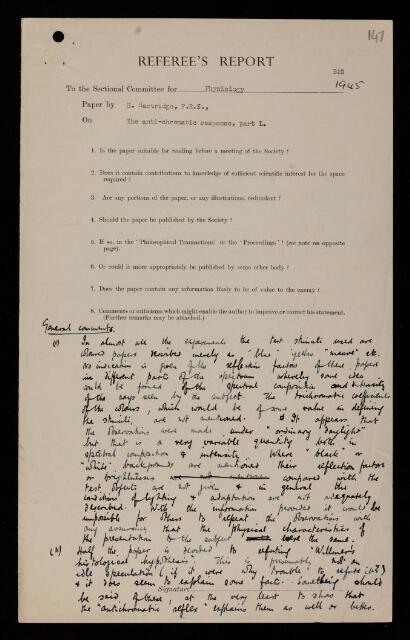 147
REFEREE'S REPORT
B25
1945
To the Sectional Committee for Physiology
Paper by H. Hartridge, F.R.S.,
On The anti-chromatic response, part I.
1. Is the paper suitable for reading before a meeting of the Society?
2. Does it contain contributions to knowledge of sufficient scientific interest for the space
required?
3. Are any portions of the paper, or any illustrations, redundant?
4. Should the paper be published by the Society?
5. If so, in the 'Philosophical Transactions' or the 'Proceedings'? (see note on opposite
page).
6. Or could it more appropriately be published by some other body?
7. Does the paper contain any information likely to be of value to the enemy?
8. Comments or criticisms which might enable the author to improve or correct his statement.
(Further remarks may be attached.)
General comments.
(1) In almost all the experiments the test stimuli used are
coloured papers described merely as "blue" "yellow" "mauve" etc.
No indication is given of the reflection factors of these papers
in different parts of the spectrum whereby some idea
could be formed of the spectral composition and intensity
of the rays seen by the subject. The trichromatic coefficients
of the colours, which would be of some value in defining
the stimuli, are not mentioned. It appears that
the observations were made under "ordinary daylight"
but that is a very variable quantity both in
spectral composition & intensity. Where "black" or
"white" backgrounds are mentioned their reflection factors
or brightnesses compared with the
test objects are not given & in general the
conditions of lighting & adaptation are not adequately
described. With the information provided it would be
impossible for others to repeat the observations with
any assurance that the physical characteristics of
the presentation to the subject were the same.
(2) Half the paper is devoted to refuting "Willmer's
histological hypothesis". This is presumably not an
idle speculation (if it were why trouble to refute it?)
& it does seem to explain some facts. Something should
Signature
be said of these, at the very least to show that
the "antichromatic reflex" explains them as well or better.